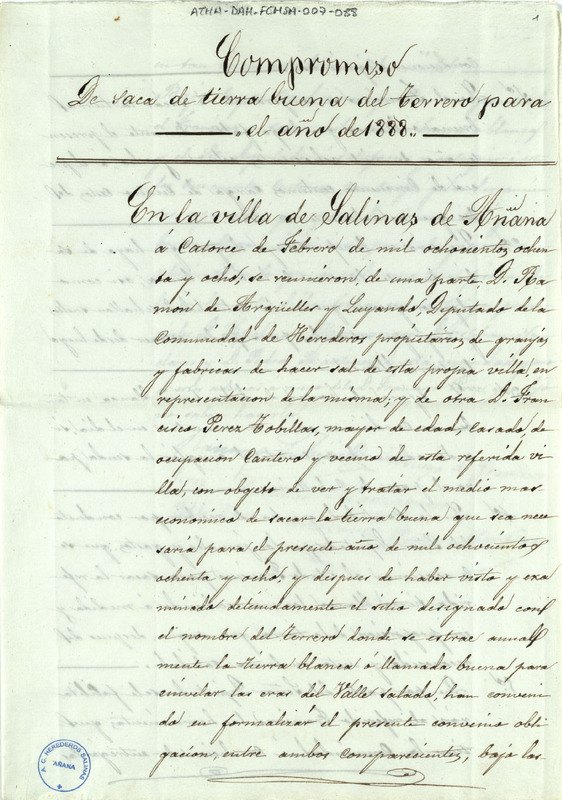 ATHA-DAH-FCHSA-007-088
1
Compromiso
De saca de tierra buena del terrero para
el año de 1888.
En la villa de Salinas de Añana
á catorce de Febrero de mil ochocientos ochen
ta y ocho, se reunieron, de una parte D. Ra
món de Argüelles y Luyando, Diputado de la
Comunidad de Herederos propietarios, de granjas
y fabricas de hacer sal de esta propia villa, en
representacion de la misma; y de otra D. Fran
cisco Perez Tobillas, mayor de edad, casado, de
ocupación Cantero y vecino de esta referida vi
lla, con objeto de ver y tratar el medio mas
economico de sacar la tierra buena que sea nece
saria para el presente año de mil ochocientos
ochenta y ocho; y despues de haber visto y exa
minado detenidamente el sitio designado con
el nombre del terrero donde se estrae anual
mente la tierra blanca ó llamada buena para
las eras del Valle salado, han conveni
do en formalizar el presente convenio obli
gacion, entre ambos comparecientes, bajo las
A.C. HEREDEROS SALINAS
AÑANA